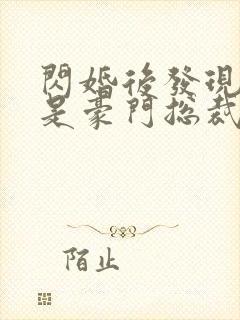 閃婚後發現
是豪門總裁
陌止